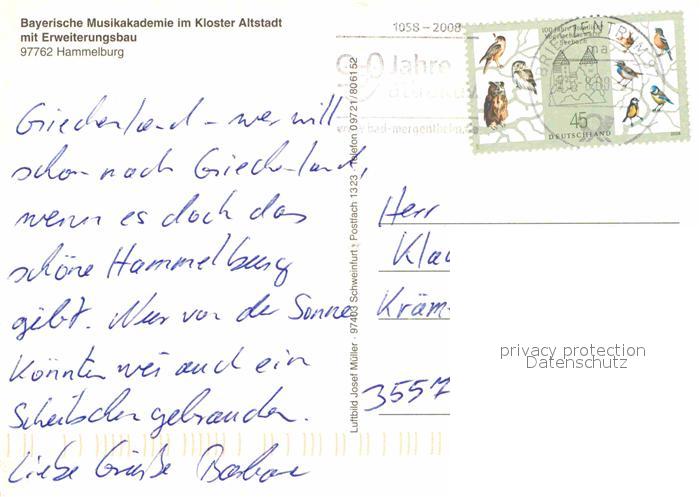 Bayerische Musikakademie im Kloster Altstadt
mit Erweiterungsbau
97762 Hammelburg
Griechenland - wer will
schon nach Griechenland,
wenn es doch das
schöne Hammelburg
gibt. Nur von der Sonne
könnten wir auch ein
Scheibchen gebrauchen.
Liebe Grüße Barbara
Luftbild Josef Müller · 97403 Schweinfurt · Postfach 1323 · Telefon 09721/806152
1058 - 2008
Jahre
www.bad-mergentheim.de
BRIEFZENTRUM
100 Jahre Staatliche
Vogelschutzwarte
Seebach
45
DEUTSCHLAND
2008
Herr
Klau
Kräm
3557
privacy protection
Datenschutz